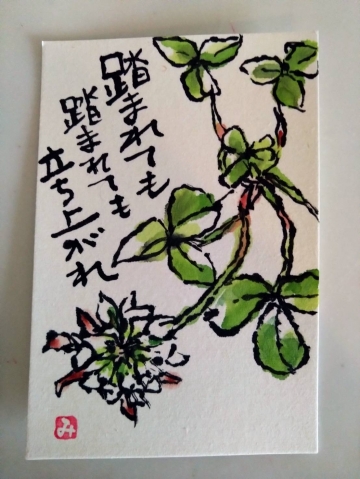 踏まれても
踏まれても
立ち上がれ
み